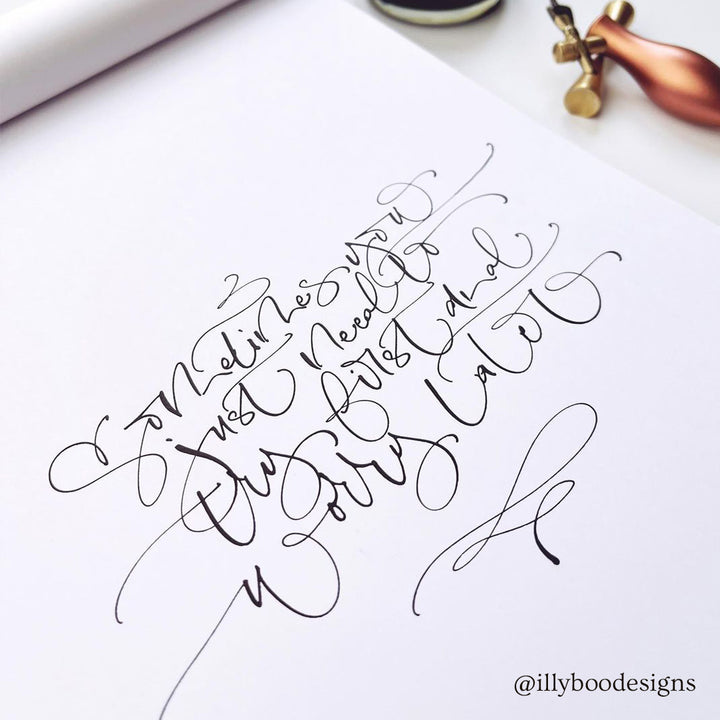 Sometimes you
just need to
try first and
Worry later
@illyboodesigns